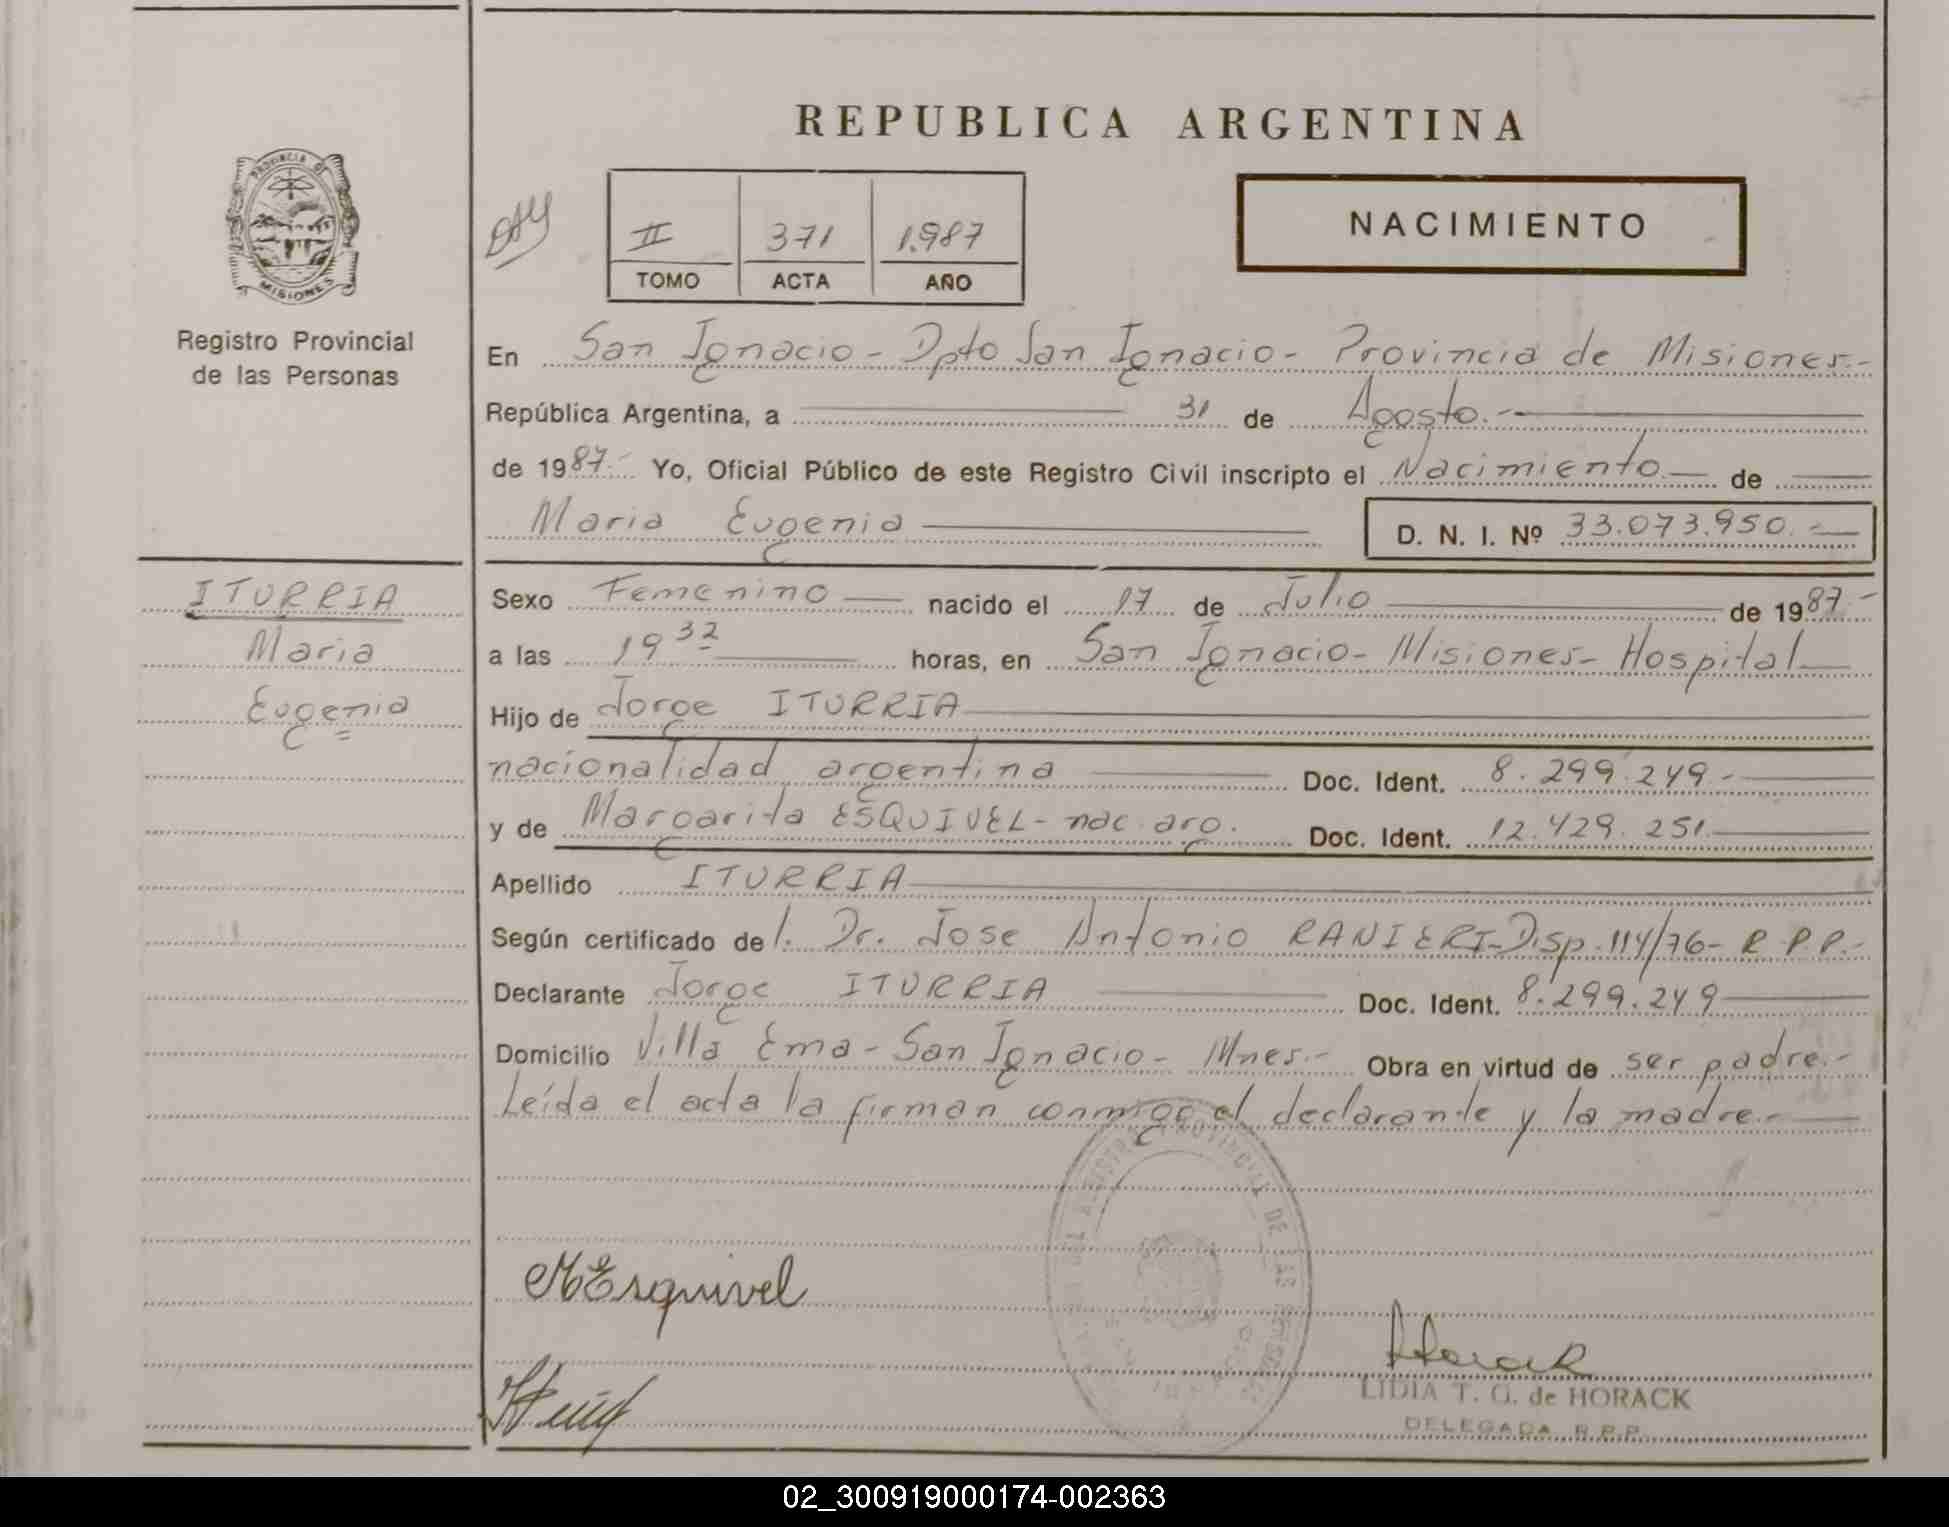 REPUBLICA ARGENTINA
PROVINCIA DE
MISIONES
Registro Provincial
de las Personas
II 371 1.987
TOMO ACTA AÑO
NACIMIENTO
En San Ignacio - Dpto San Ignacio - Provincia de Misiones.-
República Argentina, a 31 de Agosto.-
de 1987.- Yo, Oficial Público de este Registro Civil inscripto el Nacimiento de
Maria Eugenia D. N. I. Nº 33.073.950.-
ITURRIA
Maria
Eugenia
Sexo Femenino nacido el 17 de Julio de 1987.-
a las 19 32 horas, en San Ignacio - Misiones - Hospital
Hijo de Jorge ITURRIA
nacionalidad argentina Doc. Ident. 8.299.249.-
y de Margarita ESQUIVEL - nac. arg. Doc. Ident. 12.429.251.
Apellido ITURRIA
Según certificado de l. Dr. Jose Antonio RANIERI - Disp. 114/76 - R.P.P.-
Declarante Jorge ITURRIA Doc. Ident. 8.299.249
Domicilio Villa Ema - San Ignacio - Mnes.- Obra en virtud de ser padre.-
Leída el acta la firman conmigo el declarante y la madre.-
MEsquivel
Horack
LIDIA T. G. de HORACK
DELEGADA R.P.P.
02_300919000174-002363